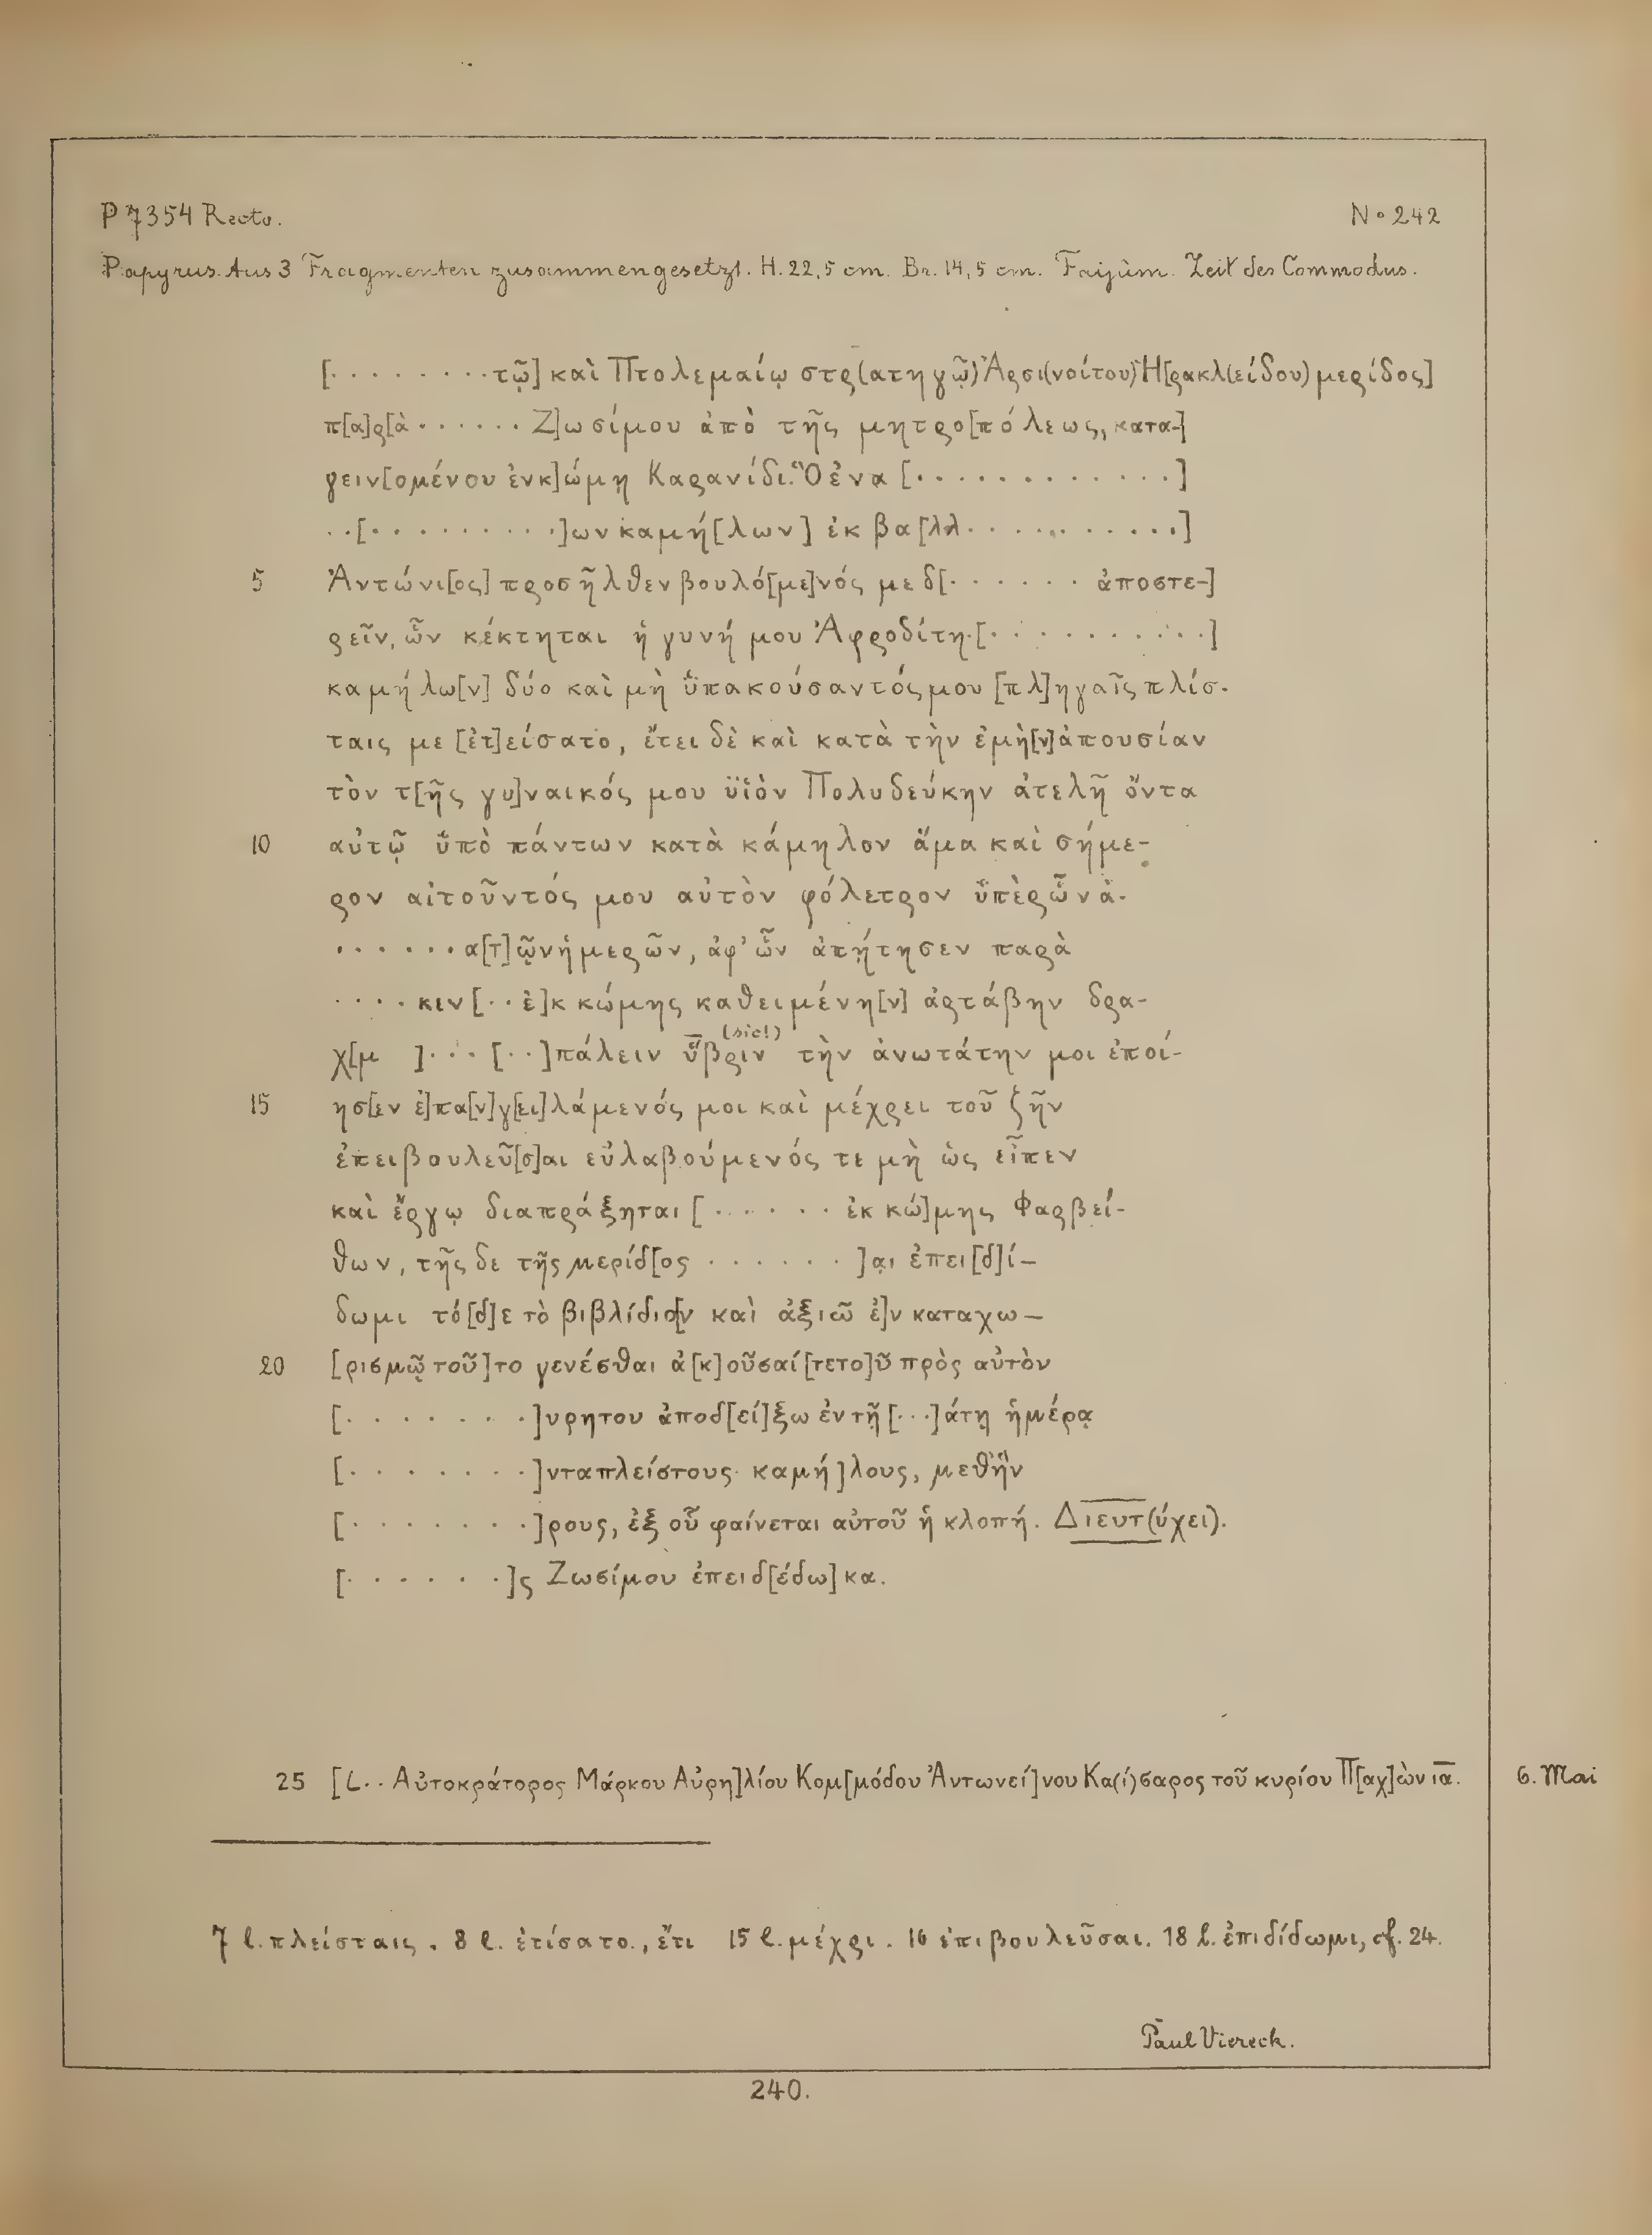 P 7354 Recto. No 242
Papyrus. Aus 3 Fragmenten zusammengesetzt. H. 22,5 cm. Br. 14,5 cm. Faijûm. Zeit des Commodus.
[· · · · · · · · τῷ] καὶ Πτολεμαίῳ στρ(ατηγῷ) Ἀρσι(νοίτου) Ἡ[ρακλ(είδου) μερίδος]
π[α]ρ[ὰ · · · · · · Ζ]ωσίμου ἀπὸ τῆς μητρο[πόλεως, κατα-]
γειν[ομένου ἐν κ]ώμῃ Καρανίδι. Ὃ ἐνα [· · · · · · · · · · · ·]
· · [· · · · · · · · ·]ων καμή[λων] ἐκ βα[λλ · · · · · · · · · ·]
5 Ἀντώνι[ος] προσῆλθεν βουλό[με]νός με δ[· · · · · · ἀποστε-]
ρεῖν, ὧν κέκτηται ἡ γυνή μου Ἀφροδίτη [· · · · · · · · · ·]
καμήλω[ν] δύο καὶ μὴ ὑ̈πακούσαντός μου [πλ]ηγαῖς πλίσ-
ταις με [ἐτ]είσατο, ἔτει δὲ καὶ κατὰ τὴν ἐμὴ[ν] ἀπουσίαν
τὸν τ[ῆς γυ]ναικός μου ϋἱὸν Πολυδεύκην ἀτελῆ ὄντα
10 αὐτῷ ὑ̈πὸ πάντων κατὰ κάμηλον ἅμα καὶ σήμε-
ρον αἰτοῦντός μου αὐτὸν φόλετρον ὑ̈πὲρ ὧν ἀ-
· · · · · · α[τ]ῷν ἡμερῶν, ἀφ' ὧν ἀπῄτησεν παρὰ
· · · · κιν [· · ἐ]κ κώμης καθειμένη[ν] ἀρτάβην δρα-
χ[μ ] · · · [· ·] πάλειν ὕ̈βριν (sic!) τὴν ἀνωτάτην μοι ἐποί-
15 ησ[εν ἐ]πα[ν]γ[ει]λάμενός μοι καὶ μέχρει τοῦ ζῆν
ἐπειβουλεῦ[σ]αι εὐλαβούμενός τε μὴ ὡς εἶπεν
καὶ ἔργῳ διαπράξηται [· · · · · · ἐκ κώ]μης Φαρβεί-
θων, τῆς δε τῆς μερίδ[ος · · · · · · ]αι ἐπει[δ]ί-
δωμι τό[δ]ε τὸ βιβλίδιο[ν καὶ ἀξιῶ ἐ]ν καταχω-
20 [ρισμῷ τοῦ]το γενέσθαι ἀ[κ]οῦσαί [τε το]ῦ πρὸς αὐτὸν
[· · · · · · · ·]υρητου ἀποδ[εί]ξω ἐν τῇ [· · ·]άτῃ ἡμέρᾳ
[· · · · · · · ·]ντα πλείστους καμή]λους, μεθ ἣν
[· · · · · · · ·]ρους, ἐξ οὗ φαίνεται αὐτοῦ ἡ κλοπή. Διευτ(ύχει).
[· · · · · · ·]ς Ζωσίμου ἐπειδ[έδω]κα.
25 [L · · Αὐτοκράτορος Μάρκου Αὐρη]λίου Κομ[μόδου Ἀντωνεί]νου Κα(ί)σαρος τοῦ κυρίου Π[αχ]ὼν ια. 6. Mai
7 l. πλείσταις. 8 l. ἐτίσατο., ἔτι 15 l. μέχρι. 16 ἐπιβουλεῦσαι. 18 l. ἐπιδίδωμι, cf. 24.
Paul Viereck.
240.